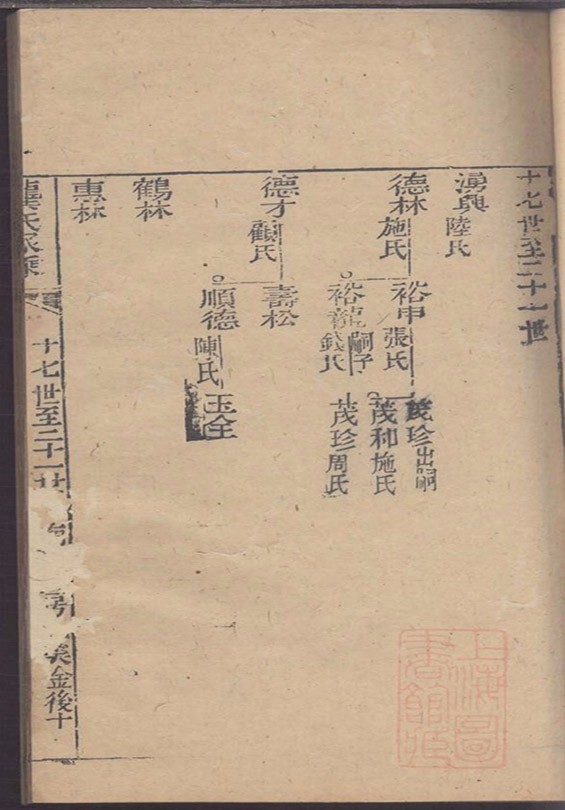 十七世至二十一世
湧興 陸氏
德林 施氏
裕申 張氏
茂珍 出嗣
茂和 施氏
裕龍 嗣子 錢氏
茂珍 周氏
德才 顧氏
壽松
順德 陳氏
玉全
鶴林
惠林
龔氏家乘
十七世至二十一世
金後十
上海圖書館藏